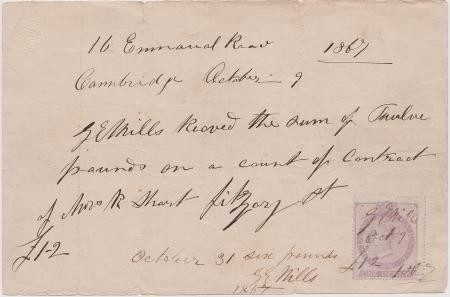 16 Emmanuel Road 1867
Cambridge October 9
G E Mills Receved the sum of Twelve
pounds on a count of Contract
of Mr R Short fitzory St
£12
October 31 six pounds
G E Mills
1867
G Mills
Oct 9
£12 1867